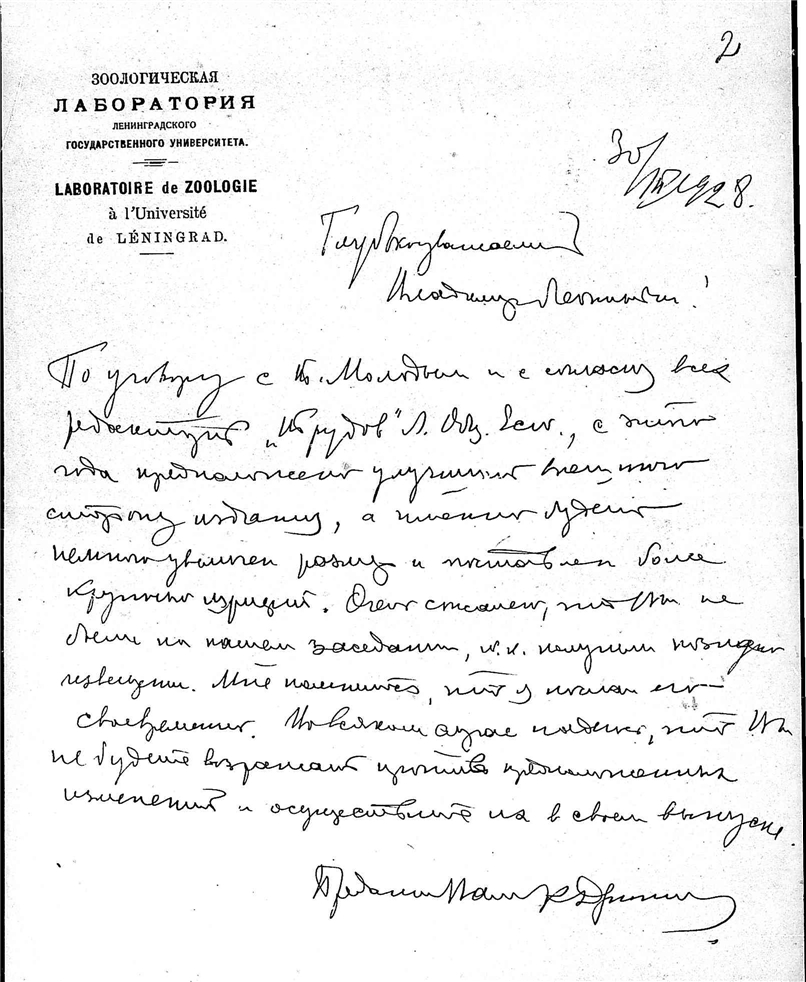 2
ЗООЛОГИЧЕСКАЯ
ЛАБОРАТОРИЯ
ЛЕНИНГРАДСКОГО
ГОСУДАРСТВЕННОГО УНИВЕРСИТЕТА.
LABORATOIRE de ZOOLOGIE
à l'Université
de LÉNINGRAD.
30/ 1928.
Глубокоуважаемый
Владимир Леонтьевич!
По уговору с В. Молодым и с согласия всех
редакторов „Трудов" Л. Общ. Ест., с этого
года предположено улучшить внешнюю
сторону издания, а именно будет
немного увеличен размер и поставлен более
крупный шрифт. Очень сожалею, что Вы не
были на нашем заседании, т. к. получили поздно
извещение. Мне помнится, что я послал его
своевременно. Во всяком случае надеюсь, что Вы
не будете возражать против предположенных
изменений и осуществите их в своем выпуске.
Преданный Вам